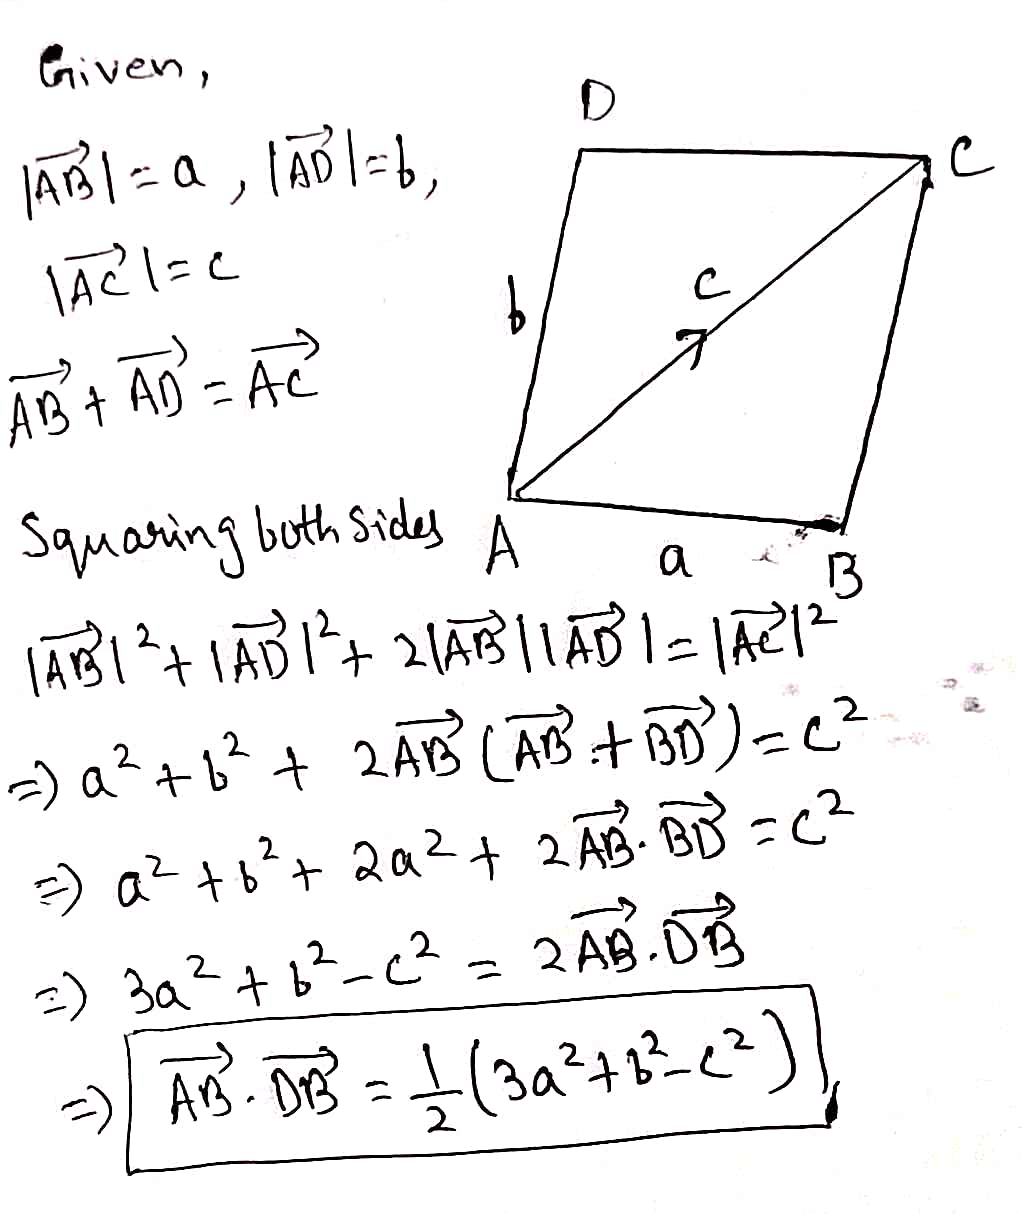 Given,
|\overrightarrow{AB}| = a, |\overrightarrow{AD}| = b,
|\overrightarrow{AC}| = c
\overrightarrow{AB} + \overrightarrow{AD} = \overrightarrow{AC}
Squaring both sides
D
C
b
c
A
a
B
|\overrightarrow{AB}|² + |\overrightarrow{AD}|² + 2|\overrightarrow{AB}||\overrightarrow{AD}| = |\overrightarrow{AC}|²
=) a² + b² + 2\overrightarrow{AB} (\overrightarrow{AB} + \overrightarrow{BD}) = c²
=) a² + b² + 2a² + 2\overrightarrow{AB}.\overrightarrow{BD} = c²
=) 3a² + b² - c² = 2\overrightarrow{AB}.\overrightarrow{DB}
=) \overrightarrow{AB}.\overrightarrow{DB} = \frac{1}{2}(3a² + b² - c²)